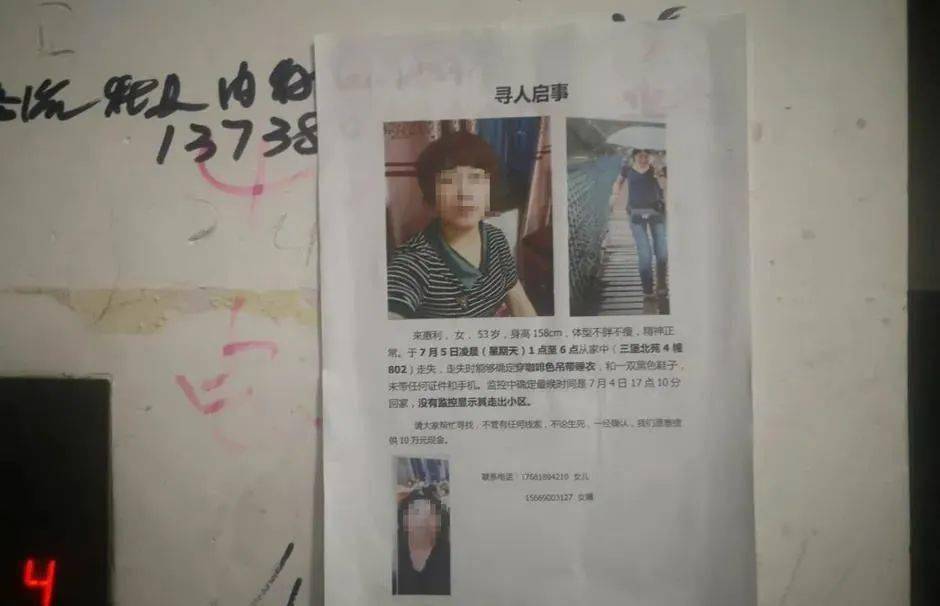 内
13738
寻人启事
来惠利，女，53岁，身高158cm，体型不胖不瘦，精神正
常。于7月5日凌晨（星期天）1点至6点从家中（三堡北苑4幢
802）走失，走失时能够确定穿咖啡色吊带睡衣，和一双黑色鞋子，
未带任何证件和手机。监控中确定最晚时间是7月4日17点10分
回家，没有监控显示其走出小区。
请大家帮忙寻找，不管有任何线索，不论生死，一经确认，我们愿意提
供10万元现金。
联系电话：17681894210 女儿
15669003127 女婿
4